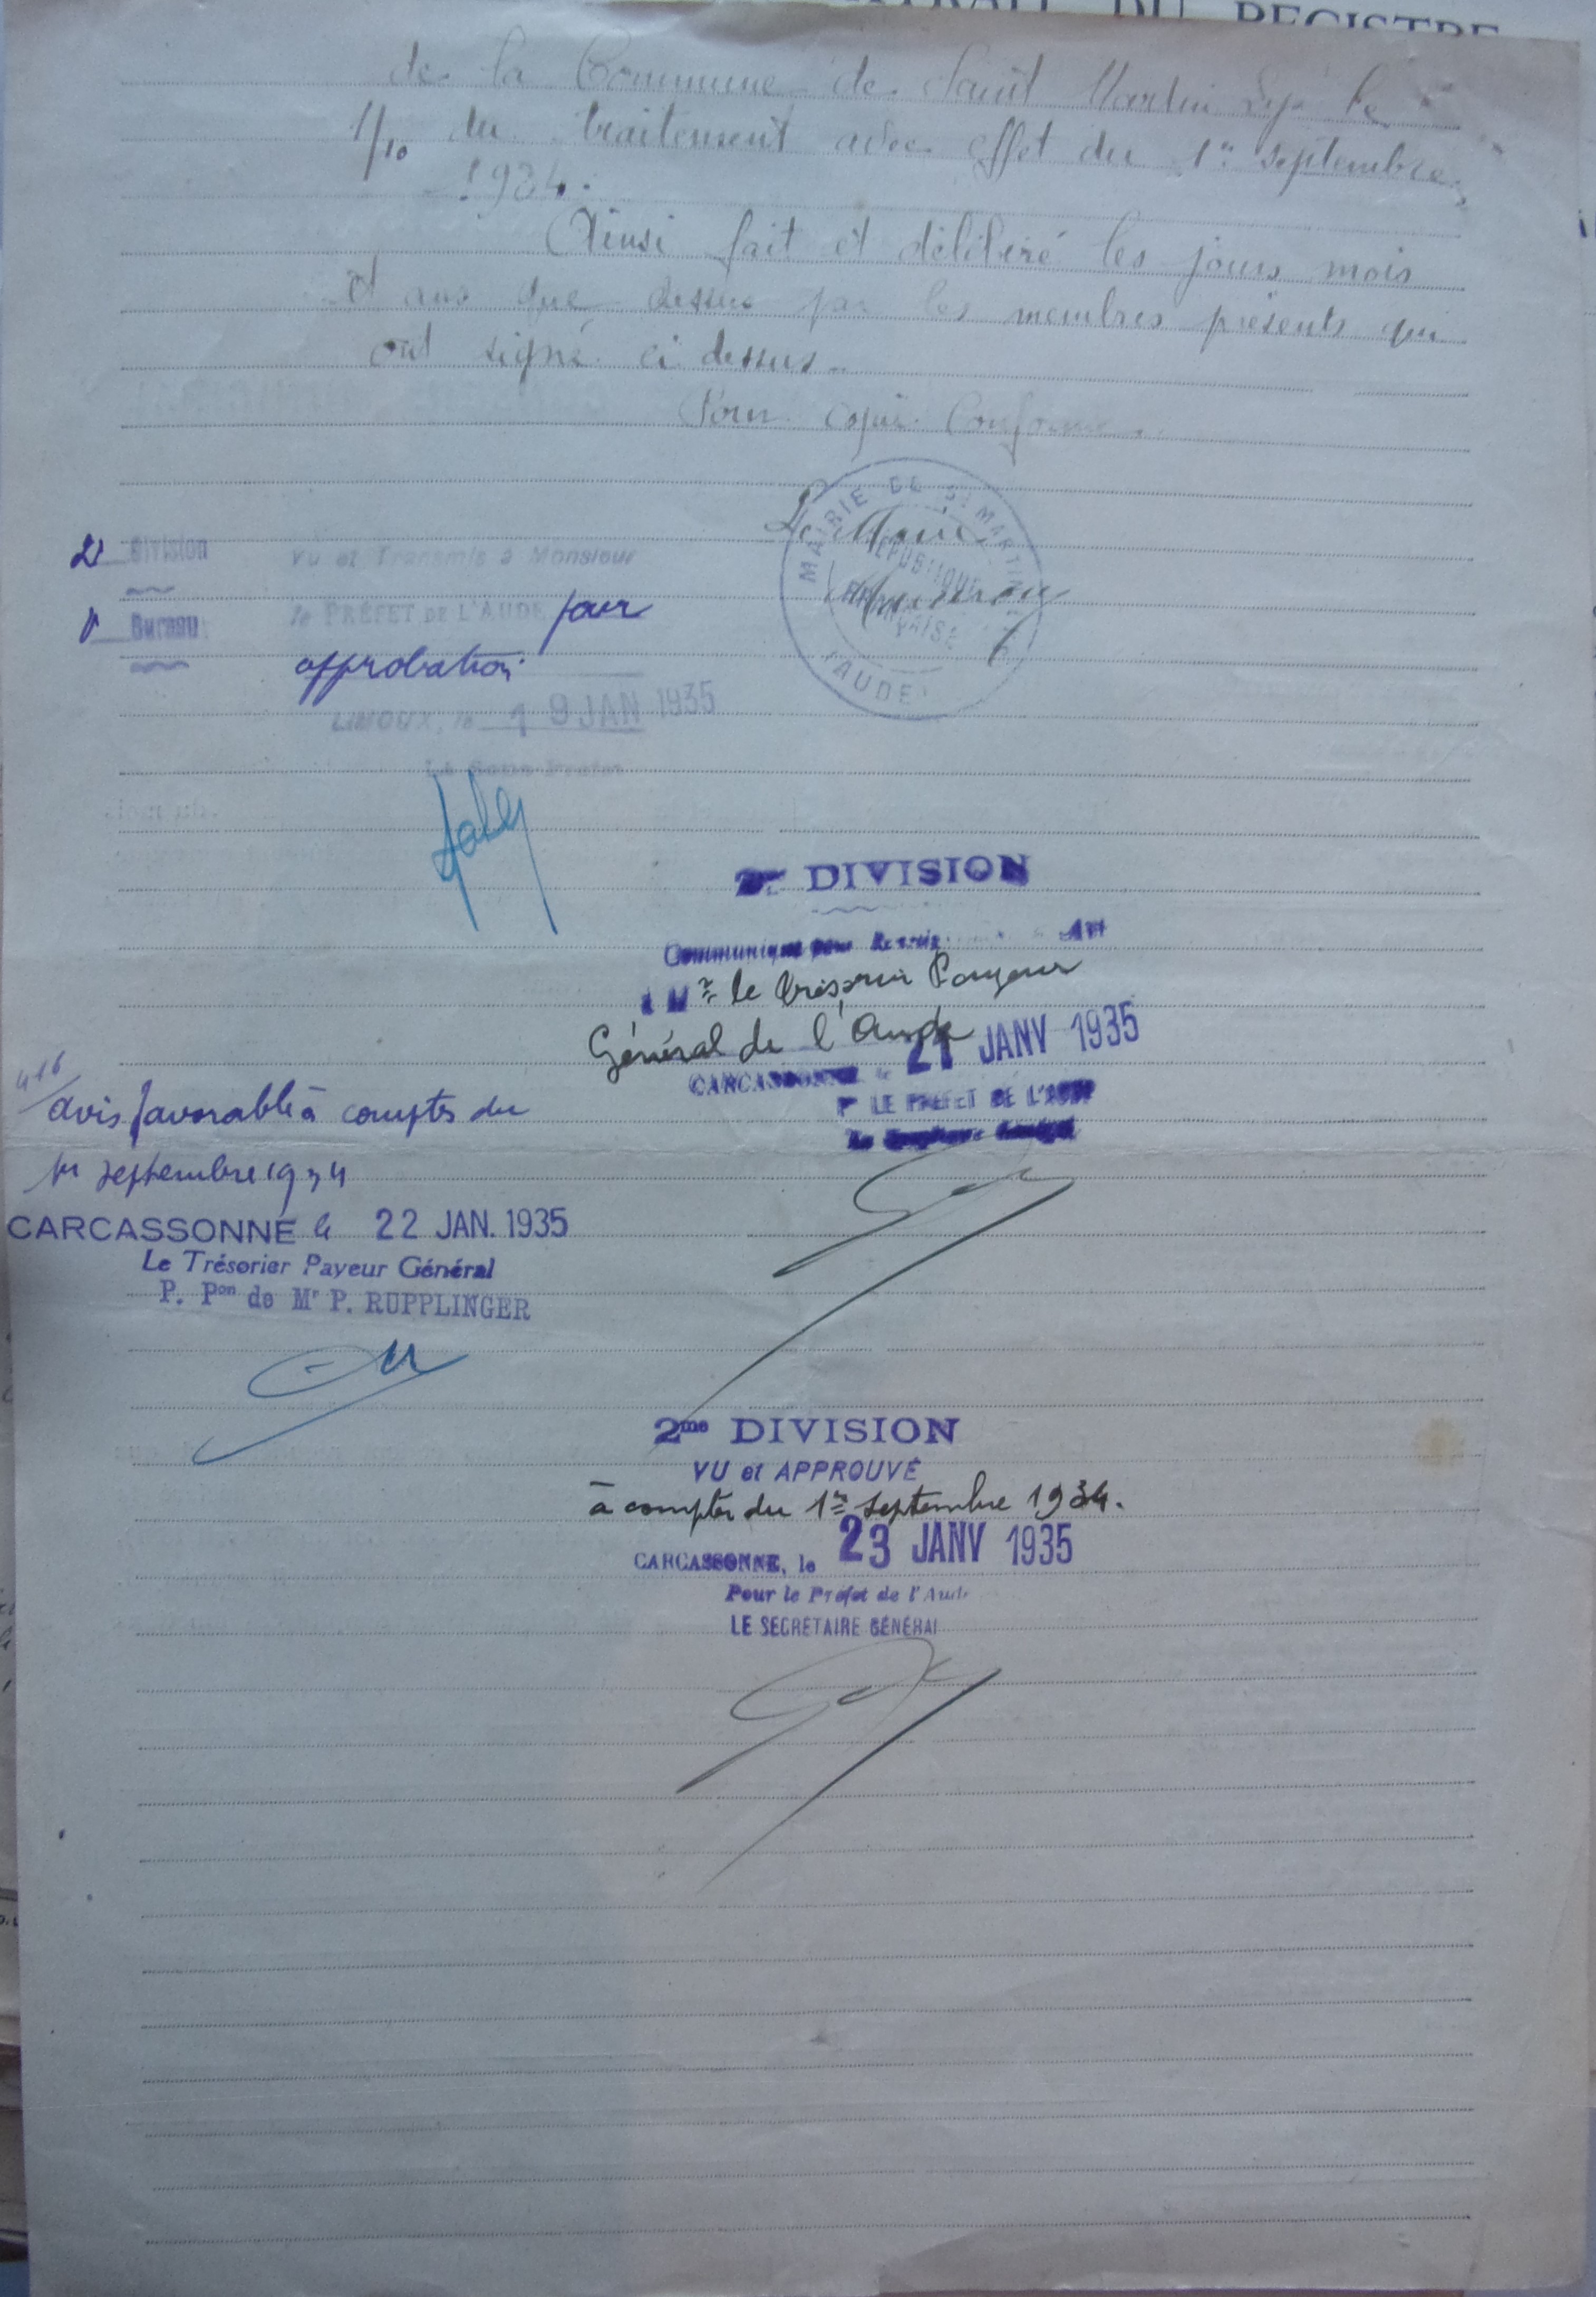 DU REGISTRE
de la Commune de Saint Martin Lys le
1/10 du traitement avec effet du 1er septembre
1934.
Ainsi fait et délibéré les jours mois
et ans que dessus par les membres présents qui
ont signé ci dessus.
Pour copie Conforme.
Le Maire
MAIRIE DE ST MARTIN
RÉPUBLIQUE
FRANÇAISE
(AUDE)
2e Division
Bureau
Vu et Transmis à Monsieur
le PRÉFET DE L'AUDE pour
approbation
LIMOUX, le 19 JAN 1935
Le Sous-Préfet
2e DIVISION
Communiqué pour
à Mr le Trésorier Payeur
Général de l'Aude
CARCASSONNE le 21 JANV 1935
Pr LE PRÉFET DE L'AUDE
416
avis favorable à compter du
1er septembre 1934
CARCASSONNE le 22 JAN. 1935
Le Trésorier Payeur Général
P. Pon de Mr P. RUPPLINGER
2me DIVISION
VU et APPROUVÉ
à compter du 1er septembre 1934.
CARCASSONNE, le 23 JANV 1935
Pour le Préfet de l'Aude
LE SECRÉTAIRE GÉNÉRAL